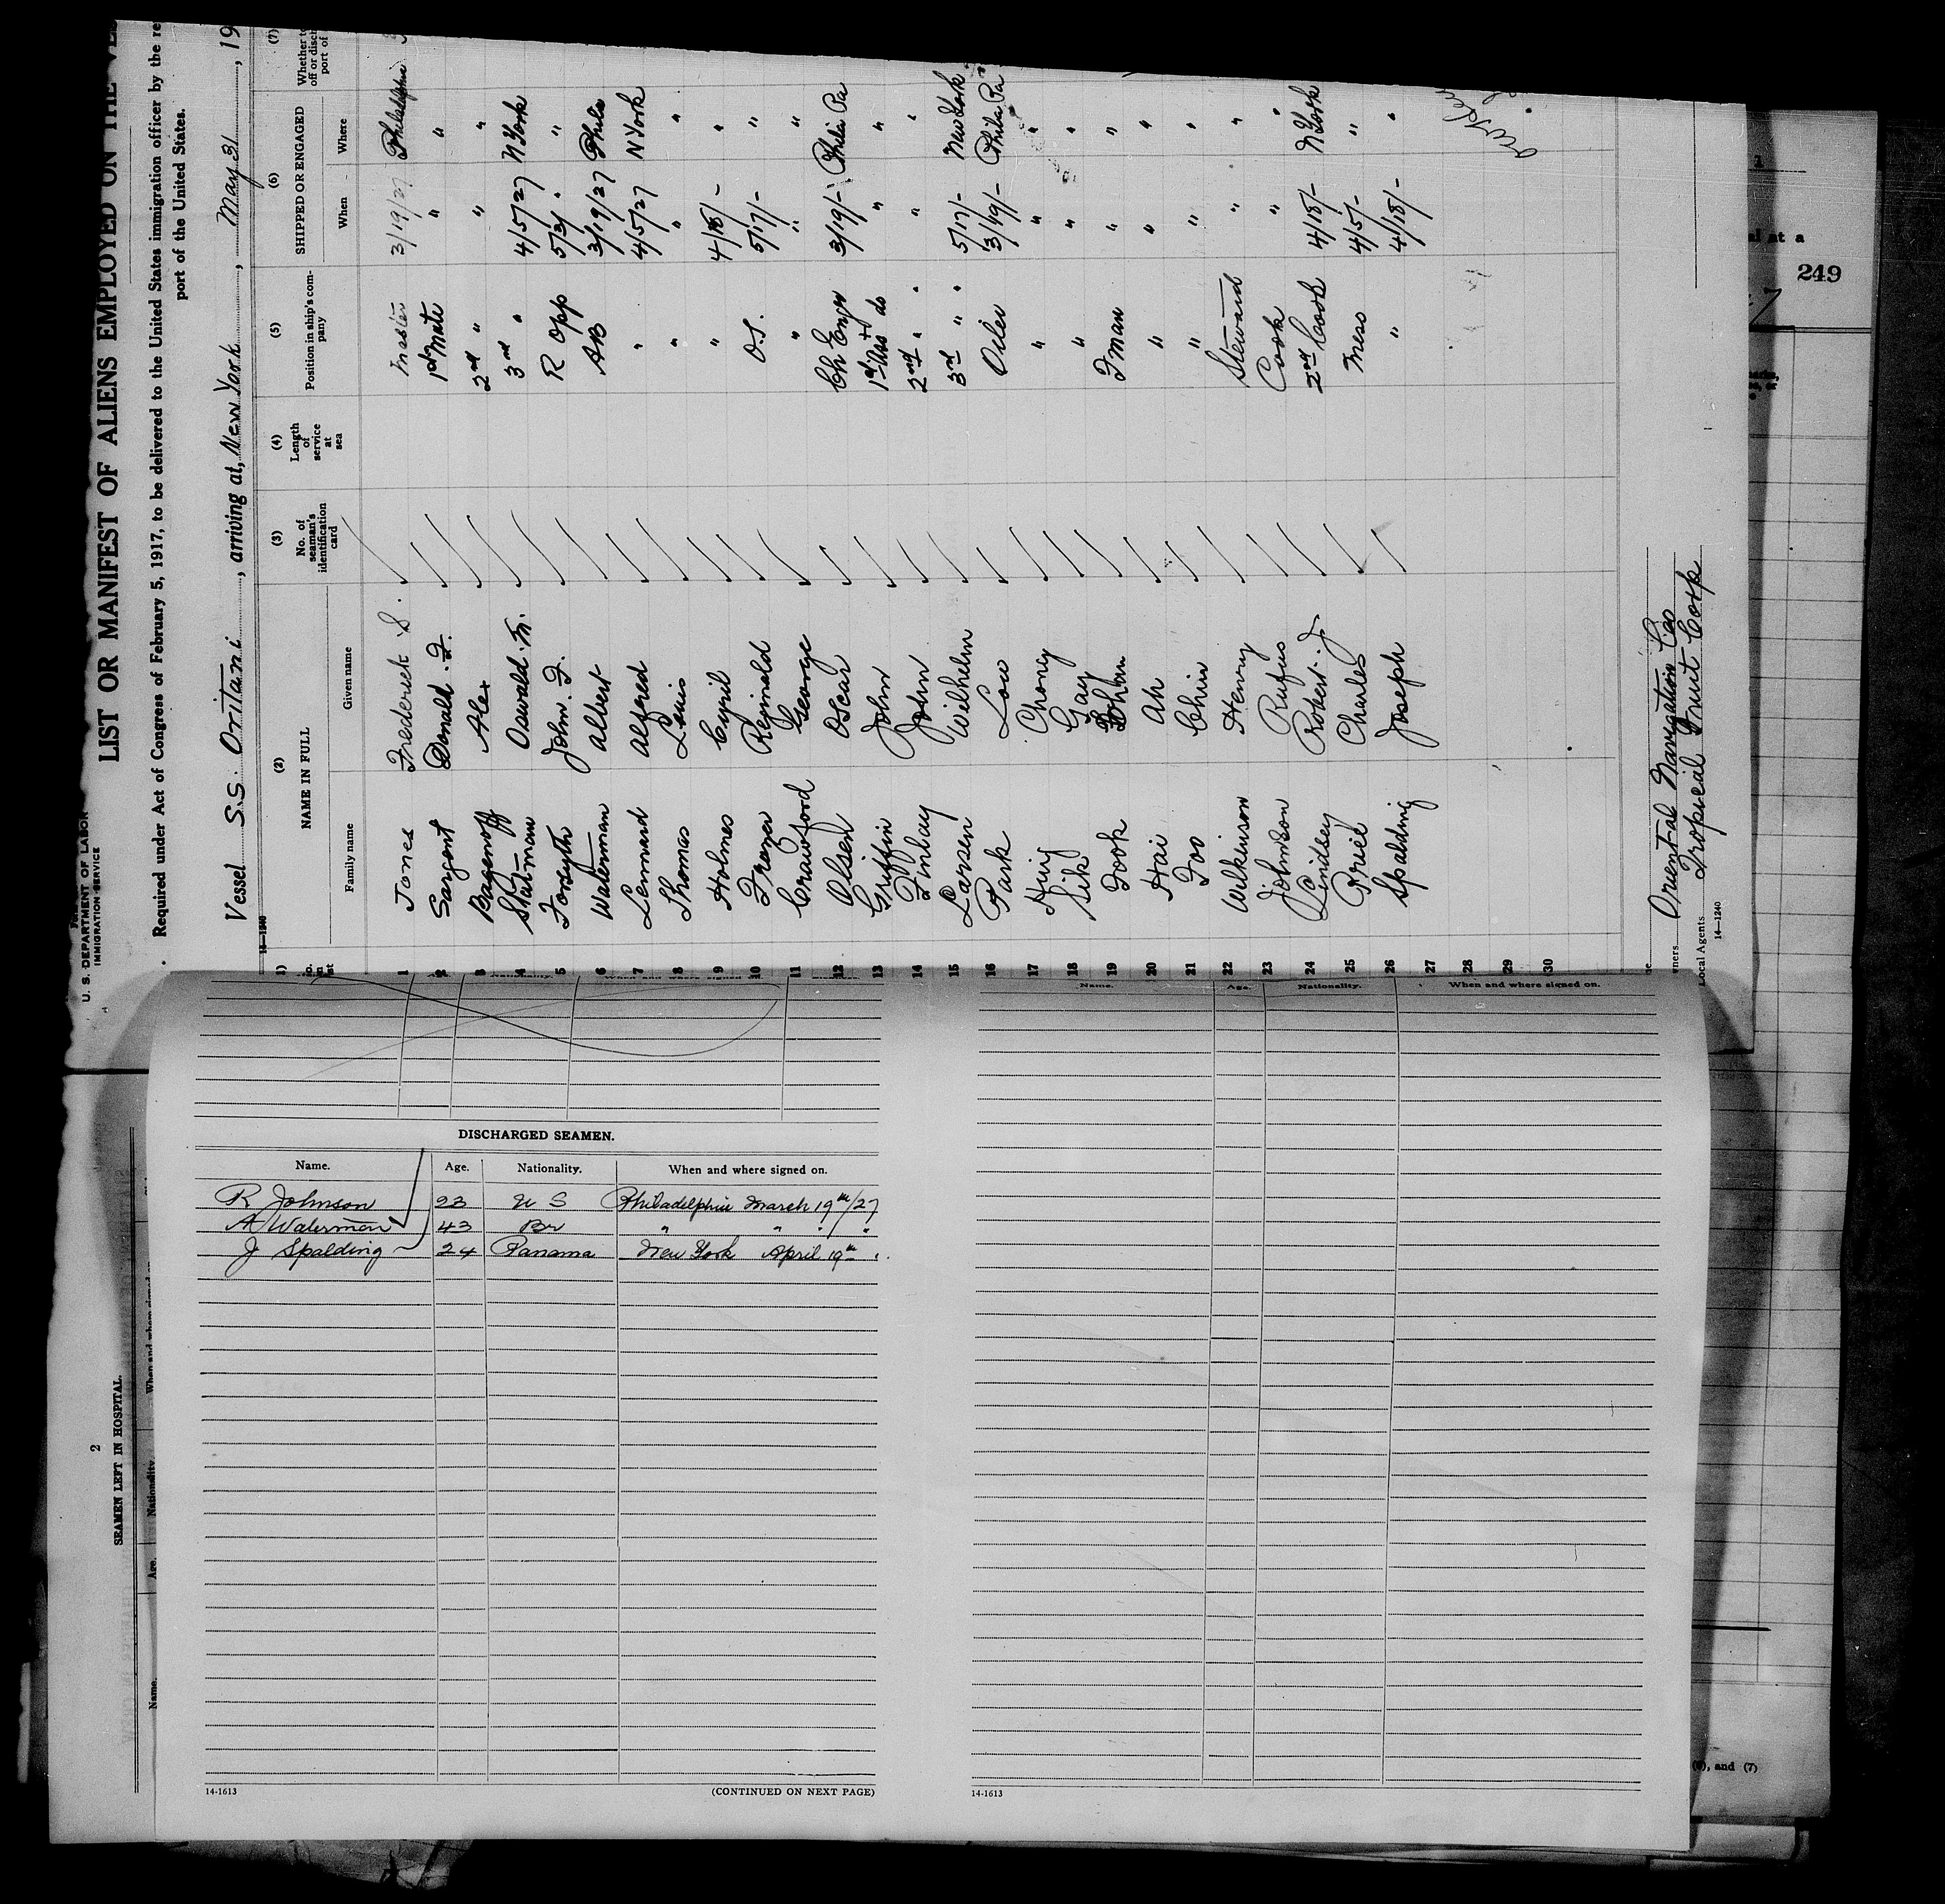 U. S. DEPARTMENT OF LABOR
IMMIGRATION SERVICE
LIST OR MANIFEST OF ALIENS EMPLOYED ON THE
Required under Act of Congress of February 5, 1917, to be delivered to the United States immigration officer by the re
port of the United States.
Vessel S.S. Oritani, arriving at, New York, May 31, 19
14—1240
(2) (3) (4) (5) (6) (7)
NAME IN FULL No. of seaman's identification card Length of service at sea Position in ship's company SHIPPED OR ENGAGED
Family name Given name When Where
1 Jones Frederick S. Master 3/19/27 Philadelphia
2 Sargent Donald F. 1st Mate " "
3 Alex 2nd " " "
4 Oswald M. 3rd " 4/5/27 N York
5 Forsyth John F. R Opp 5/21 "
6 Waterman Albert AB 3/19/27 Phila
7 Lennard Alfred " 4/5/27 N York
8 Thomas Louis " " "
9 Holmes Cyril " 4/18/- "
10 Frazer Reginald O.S. 5/17/- "
11 Crawford George " " "
12 Olsen Oscar Ch Engr 3/19/- Phila Pa
13 Griffin John 1st Ass do " "
14 Finlay John 2nd " " " "
15 Larsen Wilhelm 3rd " " 5/17/- New York
16 Park Low Oiler 3/19/- Phila Pa
17 Hing Chong " " "
18 Sik Gay " " "
19 Fook F man " "
20 Hai Ah " " "
21 Foo Chin " " "
22 Wilkinson Henry Steward " "
23 Johnson Rufus Cook " "
24 Lindsey Robert J. 2nd Cook 4/18/- N York
25 Priel Charles Mess 4/5/- "
26 Spalding Joseph " 4/18/- "
27
28
29
30
Oriental Navigation Co
Local Agents Tropical Fruit Corp
14—1240
249
DISCHARGED SEAMEN.
Name. Age. Nationality. When and where signed on.
R Johnson 23 U S Philadelphia March 19th/27
A Waterman 43 Br " " " "
J Spalding 24 Panama New York April 19th "
14-1613 (CONTINUED ON NEXT PAGE)
Name. Age. Nationality. When and where signed on.
14-1613
2
SEAMEN LEFT IN HOSPITAL.
Name. Age. Nationality. When and where signed on
, and (7)